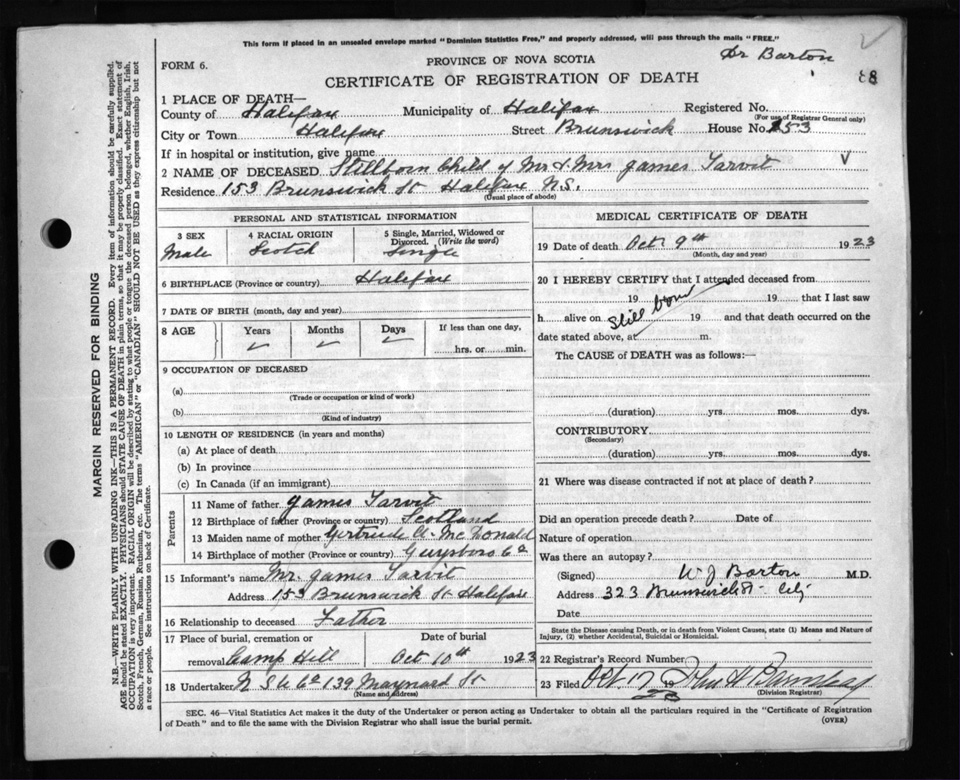 This form if placed in an unsealed envelope marked "Dominion Statistics Free," and properly addressed, will pass through the mails "FREE."
Dr Barton
FORM 6.
PROVINCE OF NOVA SCOTIA
CERTIFICATE OF REGISTRATION OF DEATH
1 PLACE OF DEATH—
County of Halifax Municipality of Halifax Registered No.
(For use of Registrar General only)
City or Town Halifax Street Brunswick House No. 153
If in hospital or institution, give name
2 NAME OF DECEASED Stillborn Child of Mr & Mrs James Tarvit
Residence 153 Brunswick St Halifax N.S.
(Usual place of abode)
PERSONAL AND STATISTICAL INFORMATION
3 SEX Male
4 RACIAL ORIGIN Scotch
5 Single, Married, Widowed or Divorced. (Write the word) Single
6 BIRTHPLACE (Province or country) Halifax
7 DATE OF BIRTH (month, day and year)
8 AGE Years Months Days If less than one day,
hrs. or min.
9 OCCUPATION OF DECEASED
(a)
(Trade or occupation or kind of work)
(b)
(Kind of industry)
10 LENGTH OF RESIDENCE (in years and months)
(a) At place of death
(b) In province
(c) In Canada (if an immigrant)
Parents
11 Name of father James Tarvit
12 Birthplace of father (Province or country) Scotland
13 Maiden name of mother Gertrude A. McDonald
14 Birthplace of mother (Province or country) Guysboro Co
15 Informant's name Mr. James Tarvit
Address 153 Brunswick St Halifax
16 Relationship to deceased Father
17 Place of burial, cremation or Date of burial
removal Camp Hill Oct 10th 1923
18 Undertaker N S U Co 139 Maynard St
(Name and address)
MEDICAL CERTIFICATE OF DEATH
19 Date of death Oct 9th 1923
(Month, day and year)
20 I HEREBY CERTIFY that I attended deceased from
19 19 that I last saw
h alive on Still born 19 and that death occurred on the
date stated above, at m.
The CAUSE of DEATH was as follows:—
(duration) yrs. mos. dys.
CONTRIBUTORY
(Secondary)
(duration) yrs. mos. dys.
21 Where was disease contracted if not at place of death?
Did an operation precede death? Date of
Nature of operation
Was there an autopsy?
(Signed) W J Barton M.D.
Address 323 Brunswick St City
Date
State the Disease causing Death, or in death from Violent Causes, state (1) Means and Nature of
Injury, (2) whether Accidental, Suicidal or Homicidal.
22 Registrar's Record Number
23 Filed Oct. 17 1923 John H Barnstead
(Division Registrar)
SEC. 46—Vital Statistics Act makes it the duty of the Undertaker or person acting as Undertaker to obtain all the particulars required in the "Certificate of Registration
of Death" and to file the same with the Division Registrar who shall issue the burial permit.
(OVER)
MARGIN RESERVED FOR BINDING
N.B.—WRITE PLAINLY WITH UNFADING INK—THIS IS A PERMANENT RECORD. Every item of information should be carefully supplied.
AGE should be stated EXACTLY. PHYSICIANS should STATE CAUSE OF DEATH in plain terms, so that it may be properly classified. Exact statement of
OCCUPATION is very important. RACIAL ORIGIN will be described by stating to what people or tongue the deceased person belonged, whether English, Irish,
Scotch, French, German, Russian, Ruthenian, etc. The terms "AMERICAN" or "CANADIAN" SHOULD NOT BE USED as they express citizenship but not
a race or people. See instructions on back of Certificate.